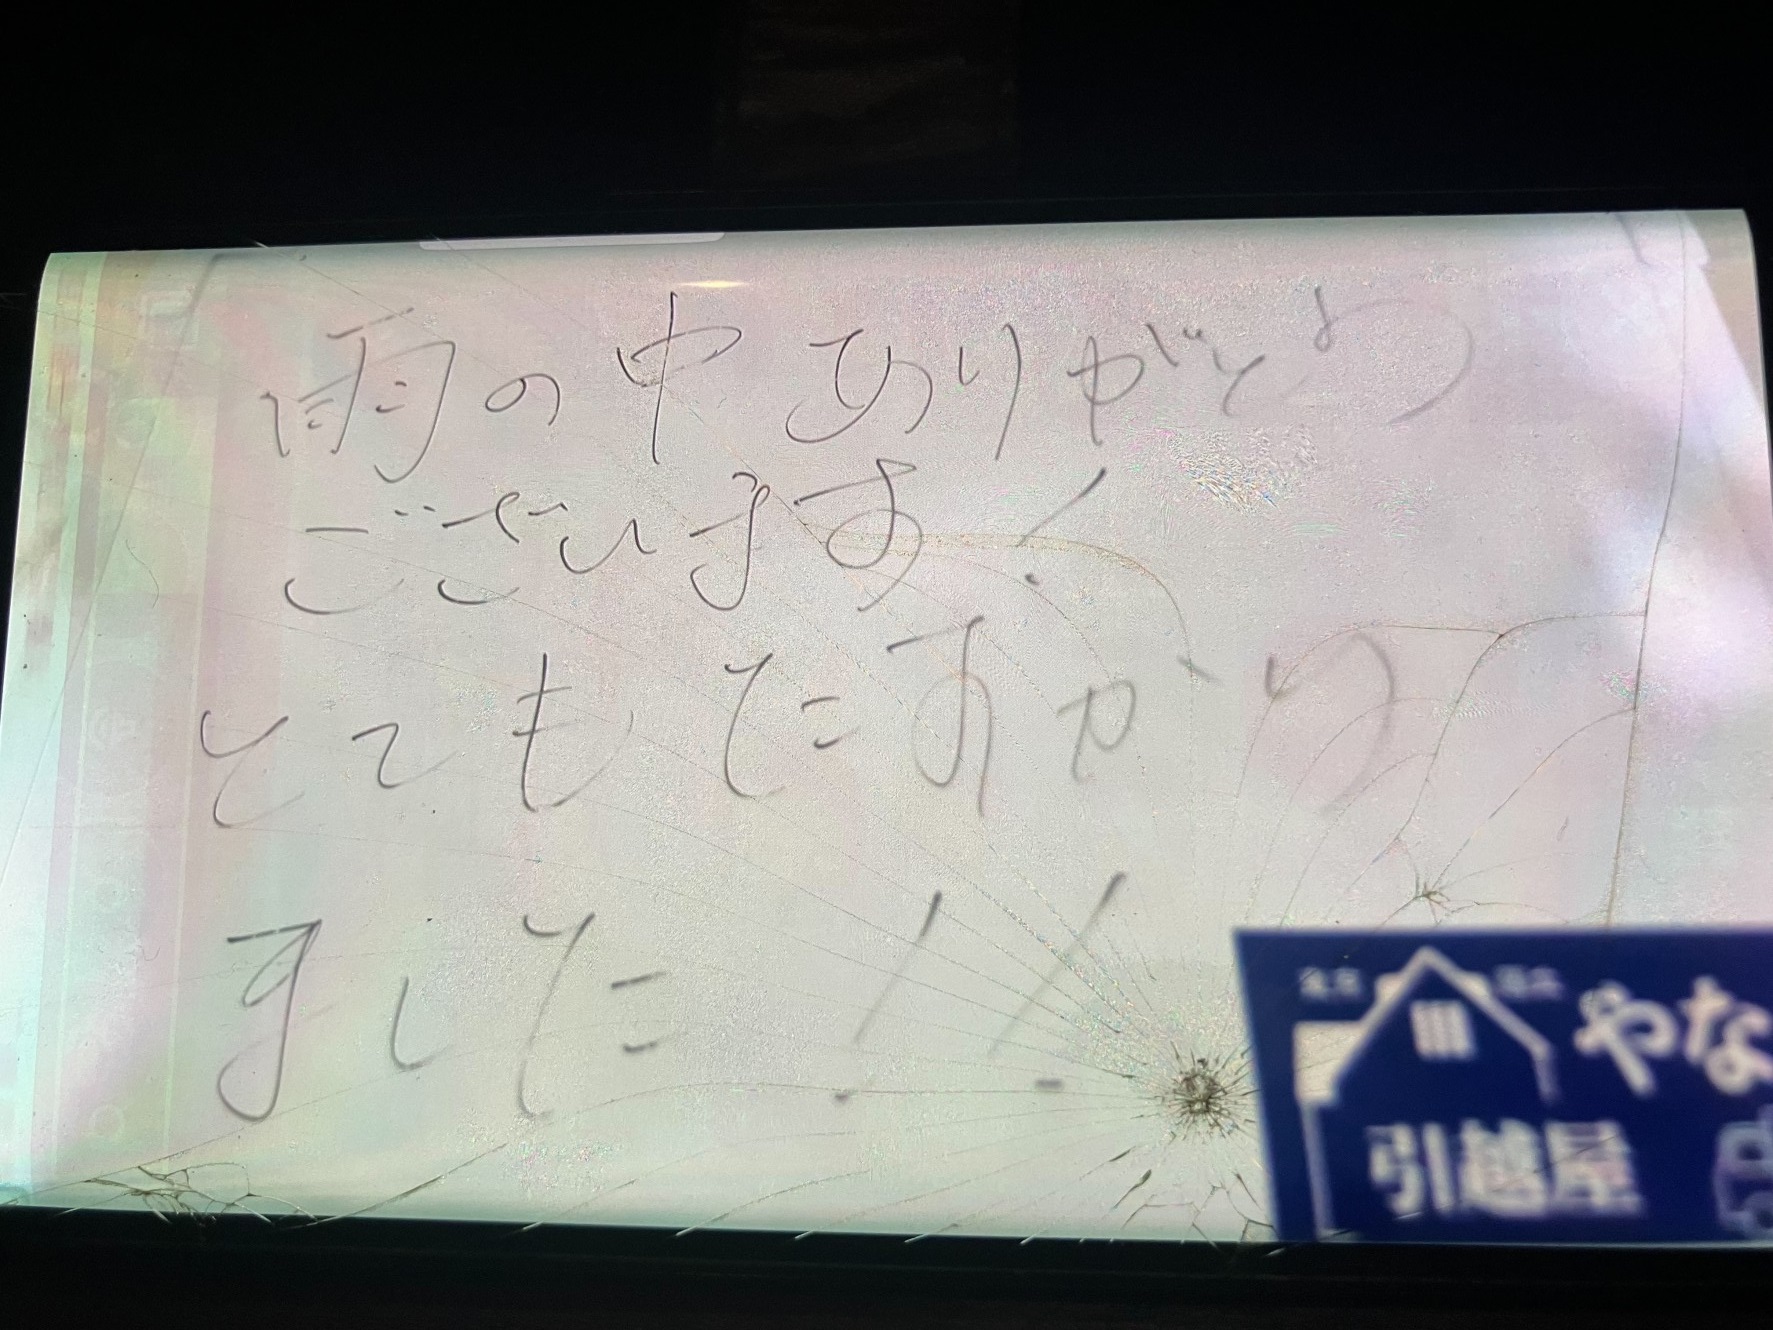 雨の中ありがとう
ございます!
とてもたすかり
ました!!
やな
引越屋